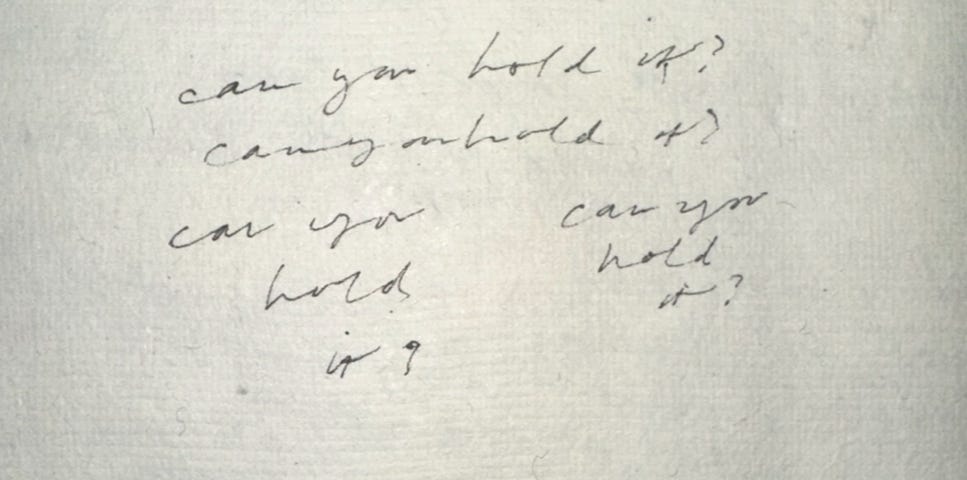 can you hold it?
can you hold it?
can you
hold
it?
can you
hold
it?